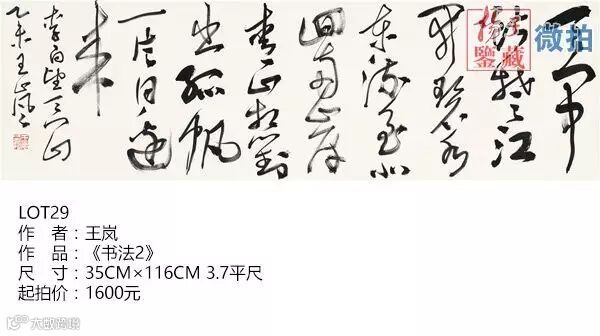 天门中
断楚江
开碧水
东流至此
回两岸
青山相对
出孤帆
一片日边
来
李白望天门山
乙未王岚
微拍
LOT29
作 者：王岚
作 品：《书法2》
尺 寸：35CM×116CM 3.7平尺
起拍价：1600元
大数跨境